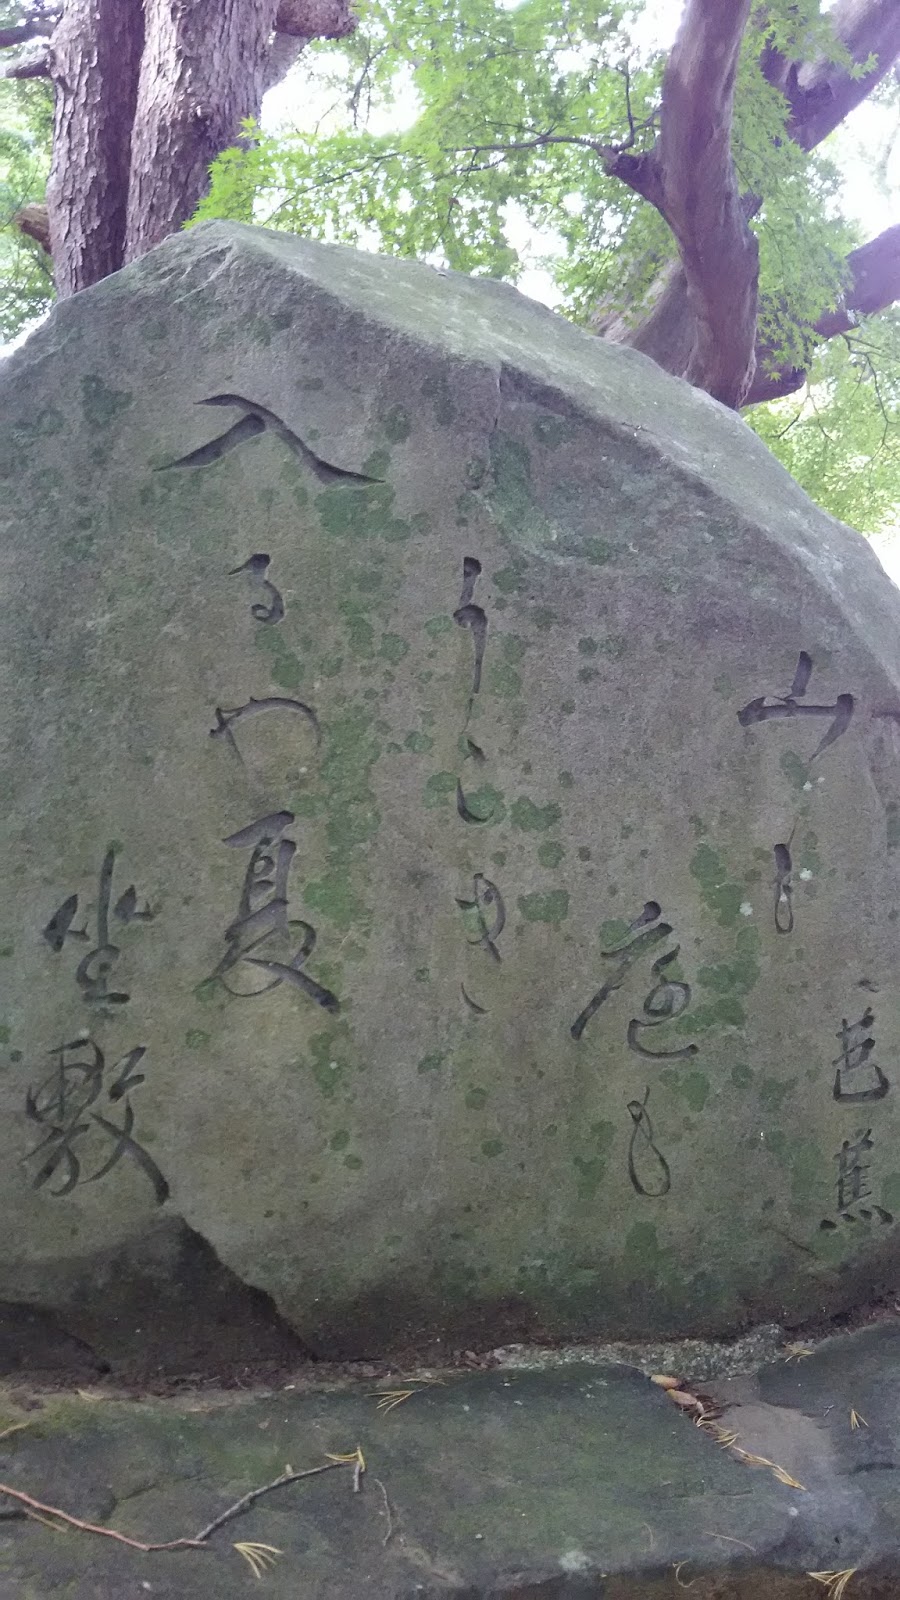 芭蕉
山も
庭も
うこき
入るや夏
坐敷